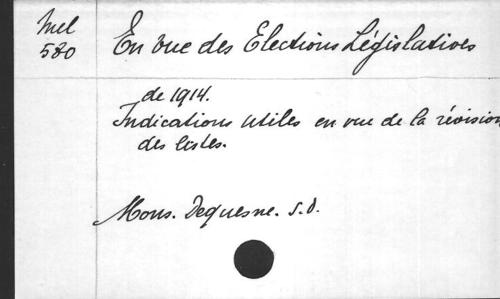 Mel
580
En vue des Elections Législatives
de 1914.
Indications utiles en vue de la révision
des listes.
Mons. Dequesne. S.D.